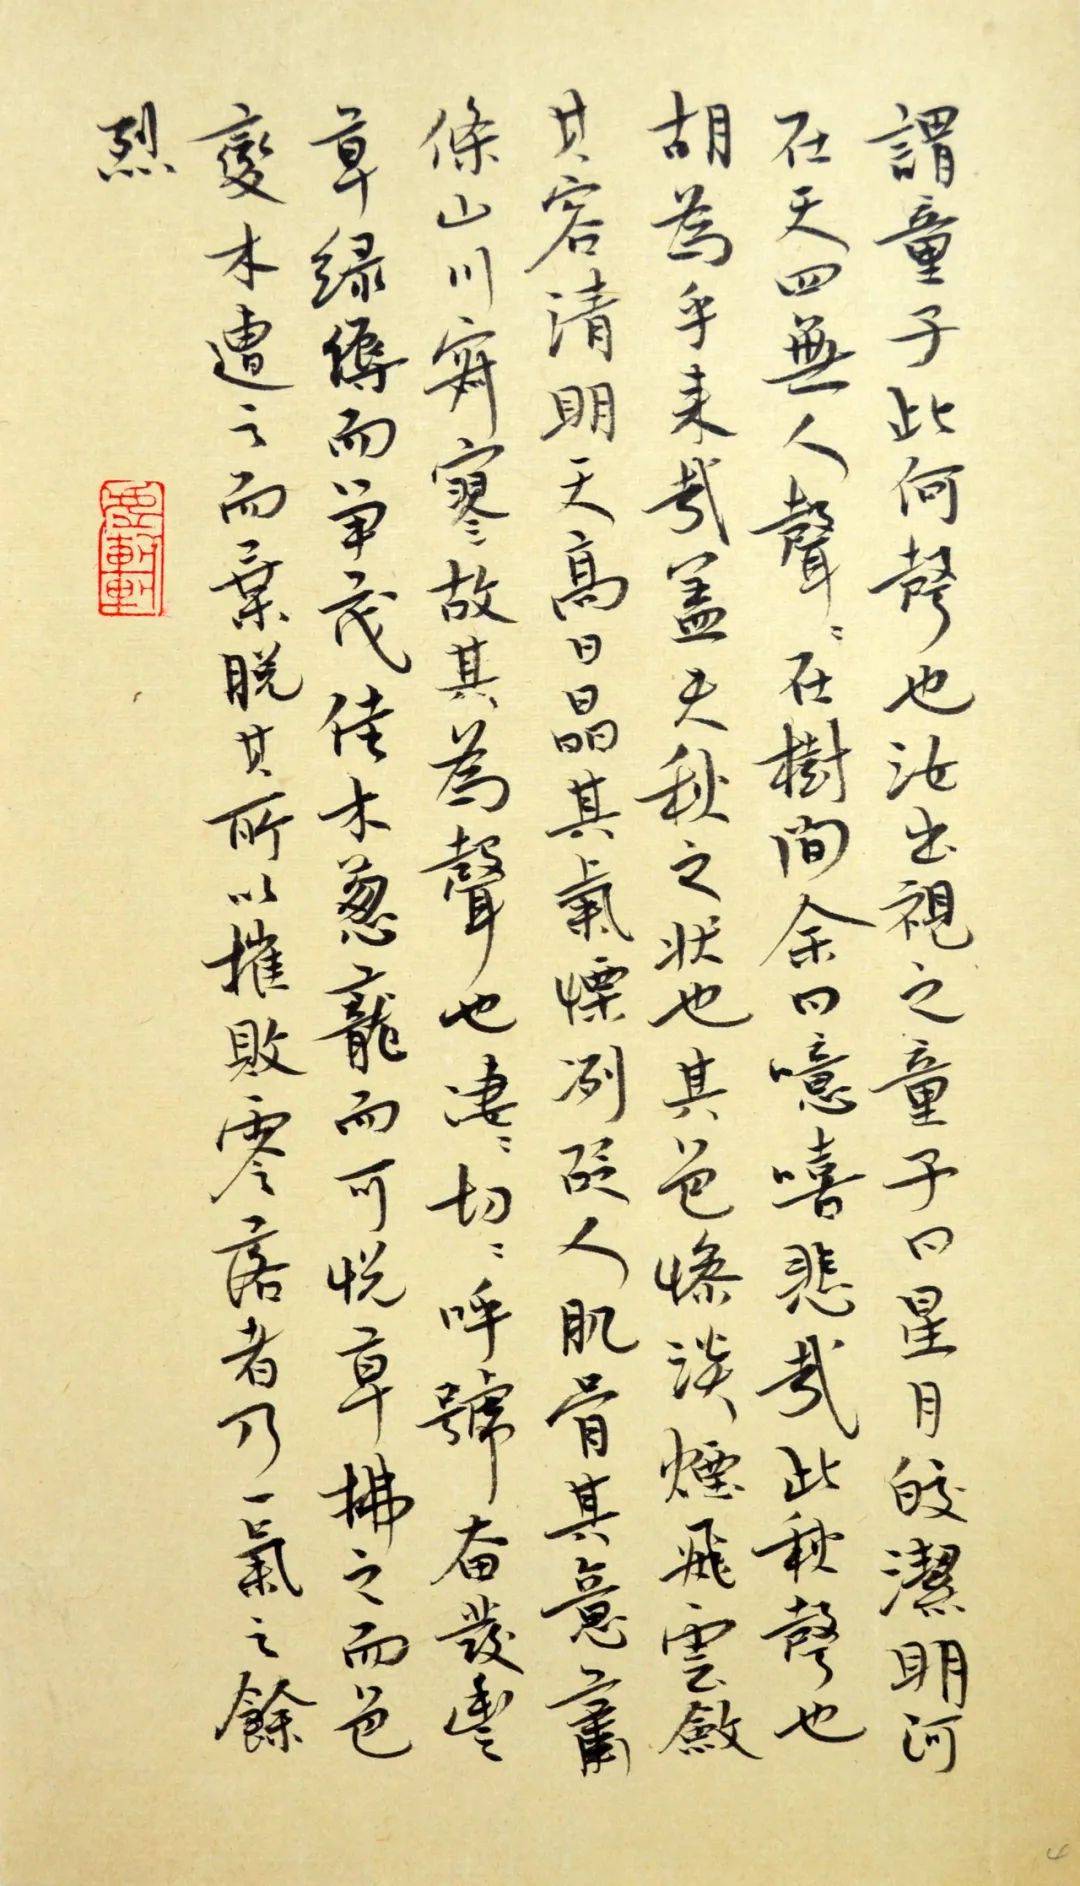 謂童子此何聲也汝出視之童子曰星月皎潔明河
在天四無人聲〻在樹間余曰噫嘻悲哉此秋聲也
胡為乎来哉盖夫秋之状也其色惨淡煙飛雲斂
其容清明天高日晶其氣慄冽砭人肌骨其意蕭
條山川寂寥故其為聲也凄〻切〻呼號奋發豐
草緑縟而争茂佳木葱蘢而可悦草拂之而色
變木遭之而葉脱其所以摧敗零落者乃一氣之餘
烈
4